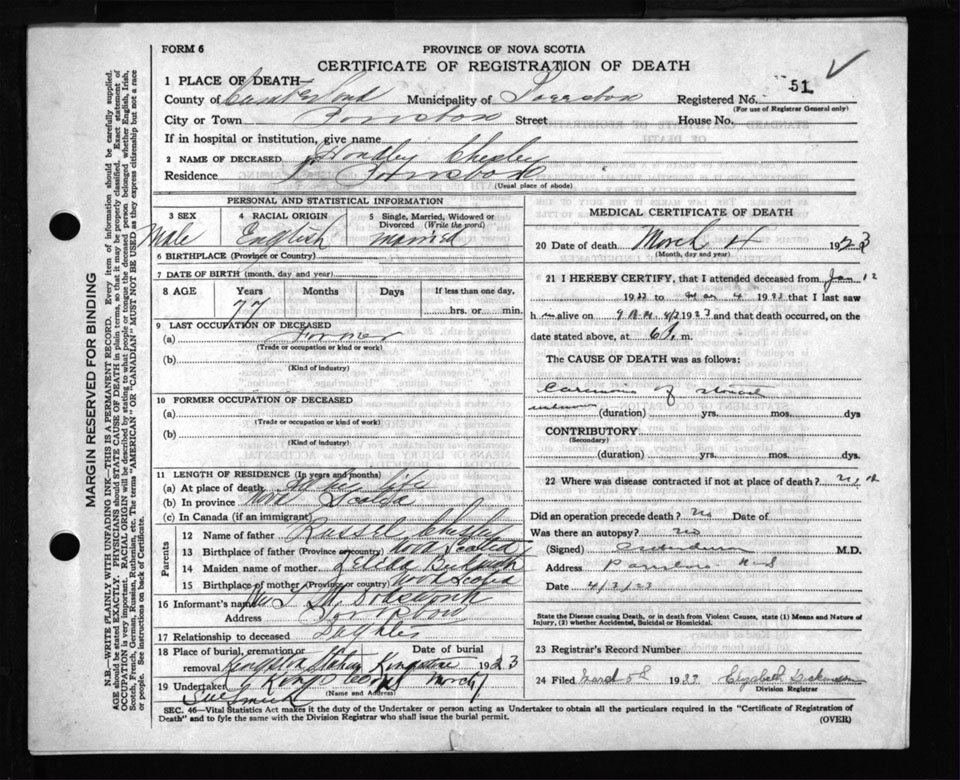 FORM 6
PROVINCE OF NOVA SCOTIA
CERTIFICATE OF REGISTRATION OF DEATH
51
1 PLACE OF DEATH—
County of Cumberland Municipality of Registered No.
(For use of Registrar General only)
City or Town Street House No.
If in hospital or institution, give name
2 NAME OF DECEASED Handley Chesley
Residence
(Usual place of abode)
PERSONAL AND STATISTICAL INFORMATION
3 SEX 4 RACIAL ORIGIN 5 Single, Married, Widowed or Divorced (Write the word)
Male English Married
6 BIRTHPLACE (Province or Country)
7 DATE OF BIRTH (month, day and year)
8 AGE Years Months Days If less than one day,
77 hrs. or min.
9 LAST OCCUPATION OF DECEASED
(a) Farmer
(Trade or occupation or kind of work)
(b)
(Kind of industry)
10 FORMER OCCUPATION OF DECEASED
(a)
(Trade or occupation or kind of work)
(b)
(Kind of industry)
11 LENGTH OF RESIDENCE (In years and months)
(a) At place of death life
(b) In province Nova Scotia
(c) In Canada (if an immigrant)
Parents
12 Name of father Russel Chesley
13 Birthplace of father (Province or country) Nova Scotia
14 Maiden name of mother
15 Birthplace of mother (Province or country) Nova Scotia
16 Informant's name Mrs
Address
17 Relationship to deceased Daughter
18 Place of burial, cremation or removal Date of burial
Kingston Station Kings 1923
19 Undertaker Kings March
(Name and Address)
MEDICAL CERTIFICATE OF DEATH
20 Date of death March 4 1923
(Month, day and year)
21 I HEREBY CERTIFY, that I attended deceased from Jan 12
1923 to Mar 4 1923 that I last saw
h im alive on 1923 and that death occurred, on the
date stated above, at 6 m.
The CAUSE OF DEATH was as follows:
Carcinoma of stomach
unknown (duration) yrs. mos. dys
CONTRIBUTORY
(Secondary)
(duration) yrs. mos. dys.
22 Where was disease contracted if not at place of death?
Did an operation precede death? no Date of
Was there an autopsy? no
(Signed) M.D.
Address Parrsboro N.S
Date 4/3/23
State the Disease causing Death, or in death from Violent Causes, state (1) Means and Nature of Injury, (2) whether Accidental, Suicidal or Homicidal.
23 Registrar's Record Number
24 Filed March 5th 1923 Elizabeth Dickinson
Division Registrar
SEC. 46—Vital Statistics Act makes it the duty of the Undertaker or person acting as Undertaker to obtain all the particulars required in the "Certificate of Registration of
Death" and to fyle the same with the Division Registrar who shall issue the burial permit.
(OVER)
MARGIN RESERVED FOR BINDING
N.B.—WRITE PLAINLY WITH UNFADING INK—THIS IS A PERMANENT RECORD. Every item of information should be carefully supplied.
AGE should be stated EXACTLY. PHYSICIANS should STATE CAUSE OF DEATH in plain terms, so that it may be properly classified. Exact statement of
OCCUPATION is very important. RACIAL ORIGIN will be described by stating to what people or tongue the deceased person belonged whether English, Irish,
Scotch, French, German, Russian, Ruthenian, etc. The terms "AMERICAN" OR "CANADIAN" MUST NOT BE USED as they express citizenship but not a race
or people. See instructions on back of Certificate.